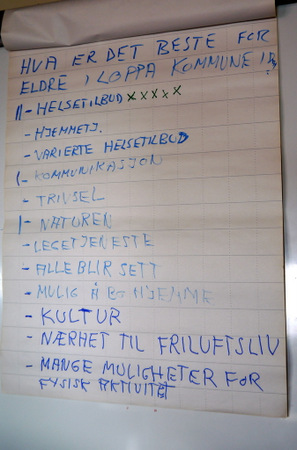 HVA ER DET BESTE FOR
ELDRE I LOPPA KOMMUNE I DAG
|| - HELSETILBUD xxxxx
- HJEMMETJ.
- VARIERTE HELSETILBUD
( - KOMMUNIKASJON
- TRIVSEL
| - NATUREN
- LEGETJENESTE
- ALLE BLIR SETT
- MULIG Å BO HJEMME
- KULTUR
- NÆRHET TIL FRILUFTSLIV
- MANGE MULIGHETER FOR
FYSISK AKTIVITET